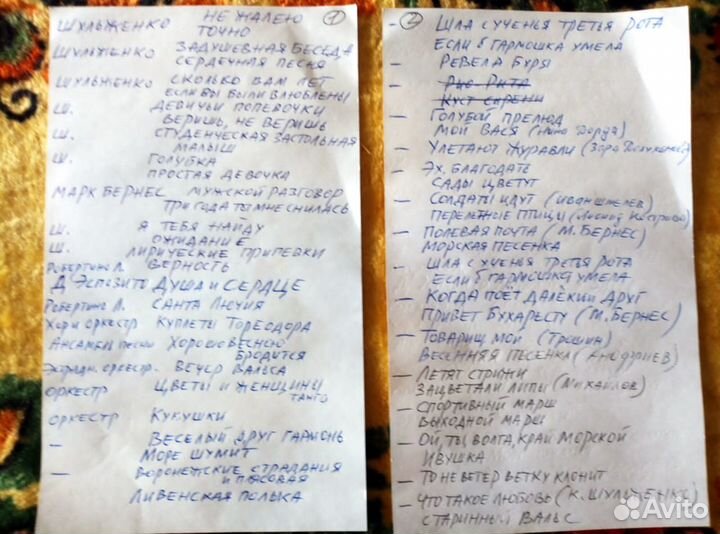 1
Шульженко Не жалею
Точно
Шульженко Задушевная беседа
Сердечная песня
Шульженко Сколько вам лет
Если вы были влюблены
Ш. Девичьи попевочки
Веришь, не веришь
Ш. Студенческая застольная
Малыш
Ш. Голубка
Простая девочка
Марк Бернес Мужской разговор
Три года ты мне снилась
Ш. Я тебя найду
Ожидание
Ш. Лирические припевки
Робертино Л. Верность
Д Эспозито Душа и сердце
Робертино Л. Санта Люхия
Хор и оркестр Куплеты Тореодора
Ансамбль песни Хорошо весною
бродится
Эстрадн. оркестр. Вечер вальса
оркестр Цветы и женщины
танго
оркестр Кукушки
— Веселый друг гармонь
Море шумит
— Воронежские страдания
и плясовая
Ливенская полька
2
- Шла с ученья третья рота
Если б гармошка умела
- Ревела буря
- Рио-Рита
Куст сирени
- Голубой прелюд
Мой Вася (Нино Дорда)
- Улетают журавли (Зара)
- Эх, благодать
Сады цветут
- Солдаты идут (Иван Шмелев)
Перелетные птицы (Леонид)
- Полевая почта (М. Бернес)
Морская песенка
- Шла с ученья третья рота
Если б гармошка умела
- Когда поёт далекий друг
Привет Бухаресту (М. Бернес)
- Товарищ мой (Трошин)
Весенняя песенка
- Летят стрижи
Зацветали липы (Михайлов)
- Спортивный марш
Выходной марш
- Ой, ты Волга, край морской
Ивушка
- То не ветер ветку клонит
- Что такое любовь (К. Шульженко)
Старинный вальс
Avito